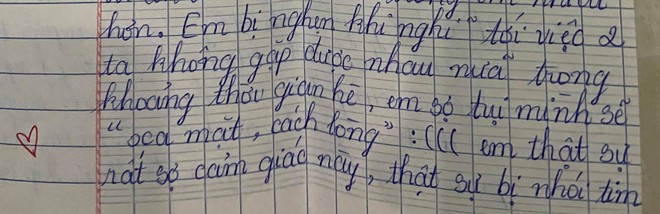 hơn. Em bị nghẹn khi nghĩ tới việc 2
ta không gặp được nhau nữa trong
khoảng thời gian hè, em sợ tụi mình sẽ
“xa mặt, cách lòng” :((( em thật sự
rất sợ cảm giác này, thật sự bị nhói tim